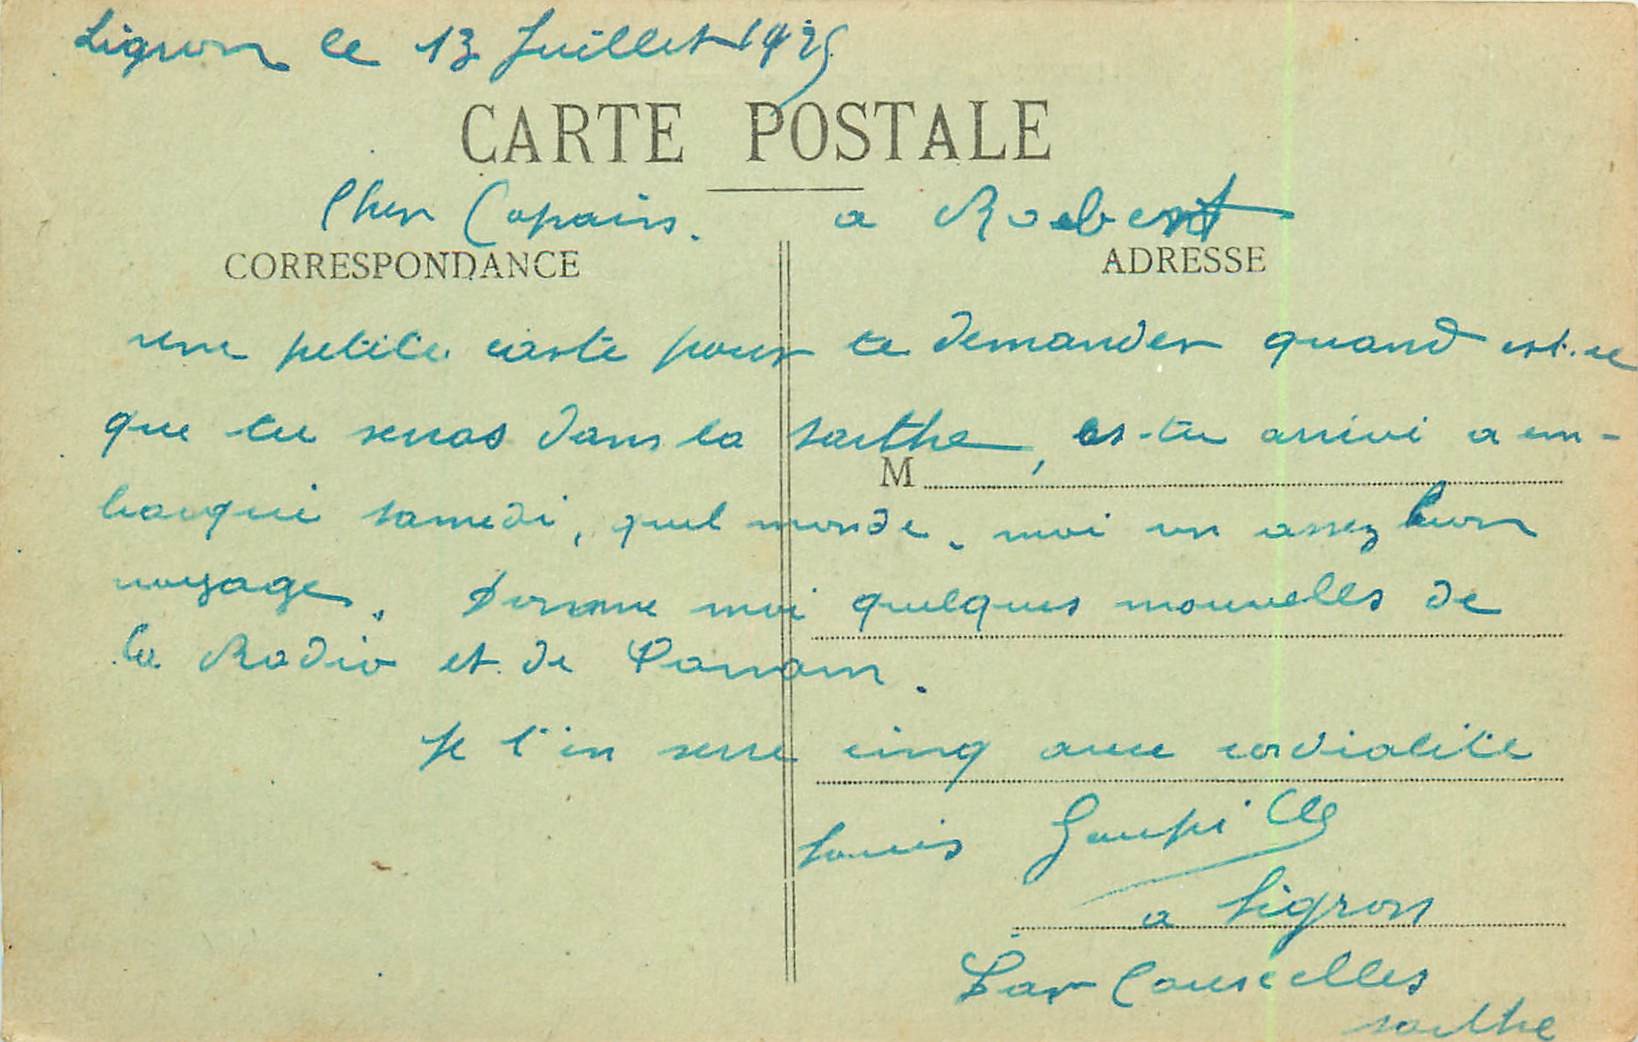 Ligron le 13 Juillet 1925
CARTE POSTALE
Cher Copain. a Robert
CORRESPONDANCE ADRESSE
une petite carte pour te demander quand est-ce
que tu seras dans la sarthe, es-tu arrivé a em-
barqué samedi, quel monde. moi un assez bon
voyage. Donne moi quelques nouvelles de
M
la Radio et de Panam.
Je t'en serre cinq avec cordialité
Louis Goupil
a Ligron
Par Courcelles
Sarthe